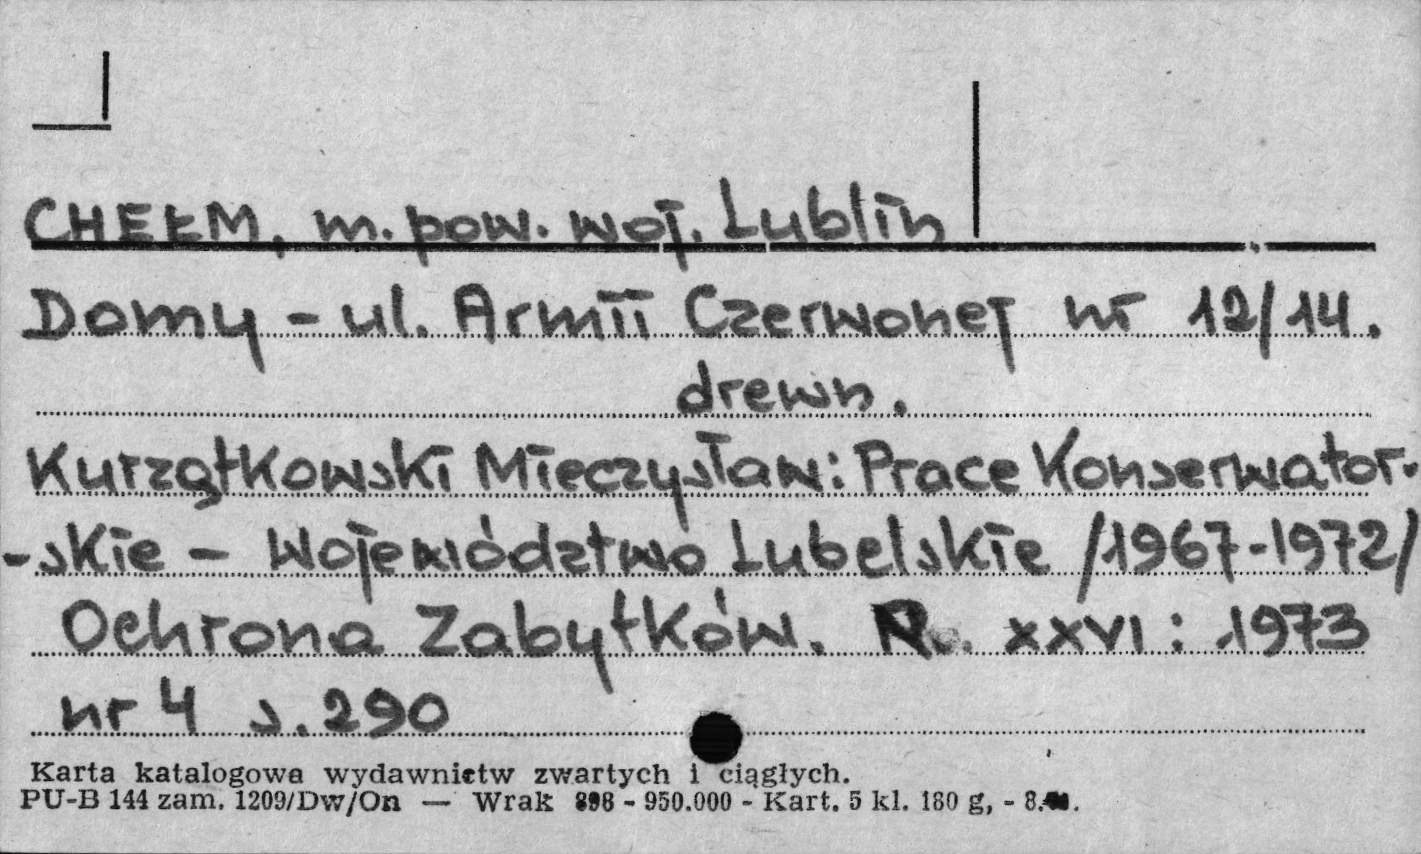 CHEŁM, m. pow. woj. Lublin
Domy - ul. Armii Czerwonej nr 12/14.
drewn.
Kurzątkowski Mieczysław: Prace Konserwator-
-skie - Województwo Lubelskie /1967-1972/
Ochrona Zabytków. R. XXVI: 1973
nr 4 s. 290
Karta katalogowa wydawnictw zwartych i ciągłych.
PU-B 144 zam. 1209/Dw/On — Wrak 898 - 950.000 - Kart. 5 kl. 180 g, - 8.